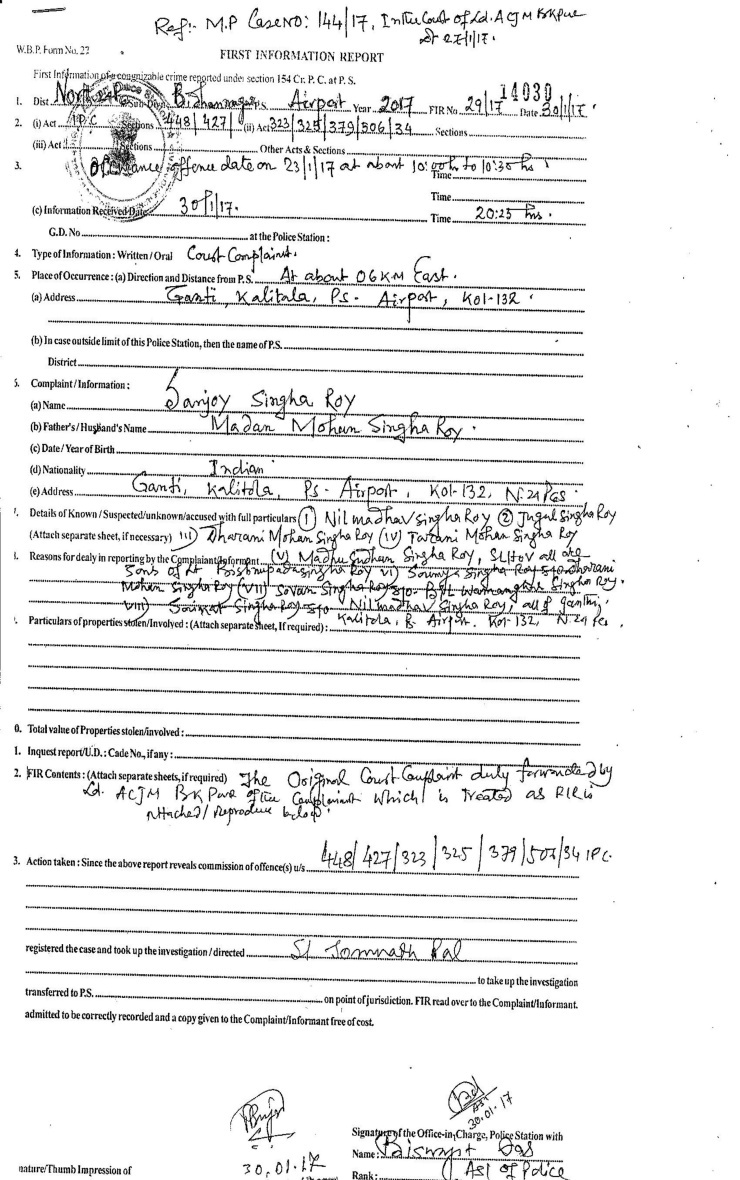 Ref:- M.P Case NO: 144/17, In the Court of Ld. ACJM BKPur
Dt 27/1/17.
W.B.P. Form No. 27
FIRST INFORMATION REPORT
First Information of a cognizable crime reported under section 154 Cr. P. C. at P. S.
14030
1. Dist North 24 Sub-Divn. Bidhannagar P.S. Airport Year 2017 FIR No 29/17 Date 30/1/17.
2. (i) Act IPC Sections 448/427/ (ii) Act 323/325/379/506/34 Sections
(iii) Act Sections Other Acts & Sections
3. offence date on 23/1/17 at about 10:00 hrs to 10:30 hrs Time
Time
(c) Information Received Date 30/1/17. Time 20:25 hrs.
G.D. No at the Police Station :
4. Type of Information : Written / Oral Court Complaint.
5. Place of Occurrence : (a) Direction and Distance from P.S. At about 06 KM East.
(a) Address Ganti, Kalitala, PS- Airport, Kol-132.
(b) In case outside limit of this Police Station, then the name of P.S.
District
5. Complaint / Information :
(a) Name Sanjoy Singha Roy
(b) Father's / Husband's Name Madan Mohan Singha Roy.
(c) Date / Year of Birth
(d) Nationality Indian
(e) Address Ganti, Kalitala, PS- Airport, Kol-132, N. 24 PGS
Details of Known / Suspected/unknown/accused with full particulars (1) Nilmadhav Singha Roy (2) Jugal Singha Roy
(Attach separate sheet, if necessary) III) Dharani Mohan Singha Roy (IV) Tarani Mohan Singha Roy
Reasons for dealy in reporting by the Complaint/Informent (V) Madhu Sudhan Singha Roy, all are
Sons of Lt Singha Roy VI) Soumya Singha Roy S/o Dharani
Mohan Singha Roy (VII) Sovan Singha Roy S/o- Singha Roy.
VIII) Singha Roy S/o Nilmadhav Singha Roy, all of Ganti,
Particulars of properties stolen/Involved : (Attach separate sheet, If required) : Kalitola, PS Airport. Kol-132, N. 24 PGS.
0. Total value of Properties stolen/involved :
1. Inquest report/U.D. : Cade No., if any :
2. FIR Contents : (Attach separate sheets, if required) The Original Court Complaint duly forwarded by
Ld. ACJM BK Pore of the Complainant which is treated as FIR is
attached / reproduce below.
3. Action taken : Since the above report reveals commission of offence(s) u/s 448/427/323/325/379/506/34 IPC.
registered the case and took up the investigation / directed SI Somnath Pal
to take up the investigation
transferred to P.S. on point of jurisdiction. FIR read over to the Complaint/Informant.
admitted to be correctly recorded and a copy given to the Complaint/Informant free of cost.
ASI
30.01.17
Signature of the Office-in-Charge, Police Station with
Name : Biswajit Das
30.01.17
nature/Thumb Impression of
Rank : ASI of Police